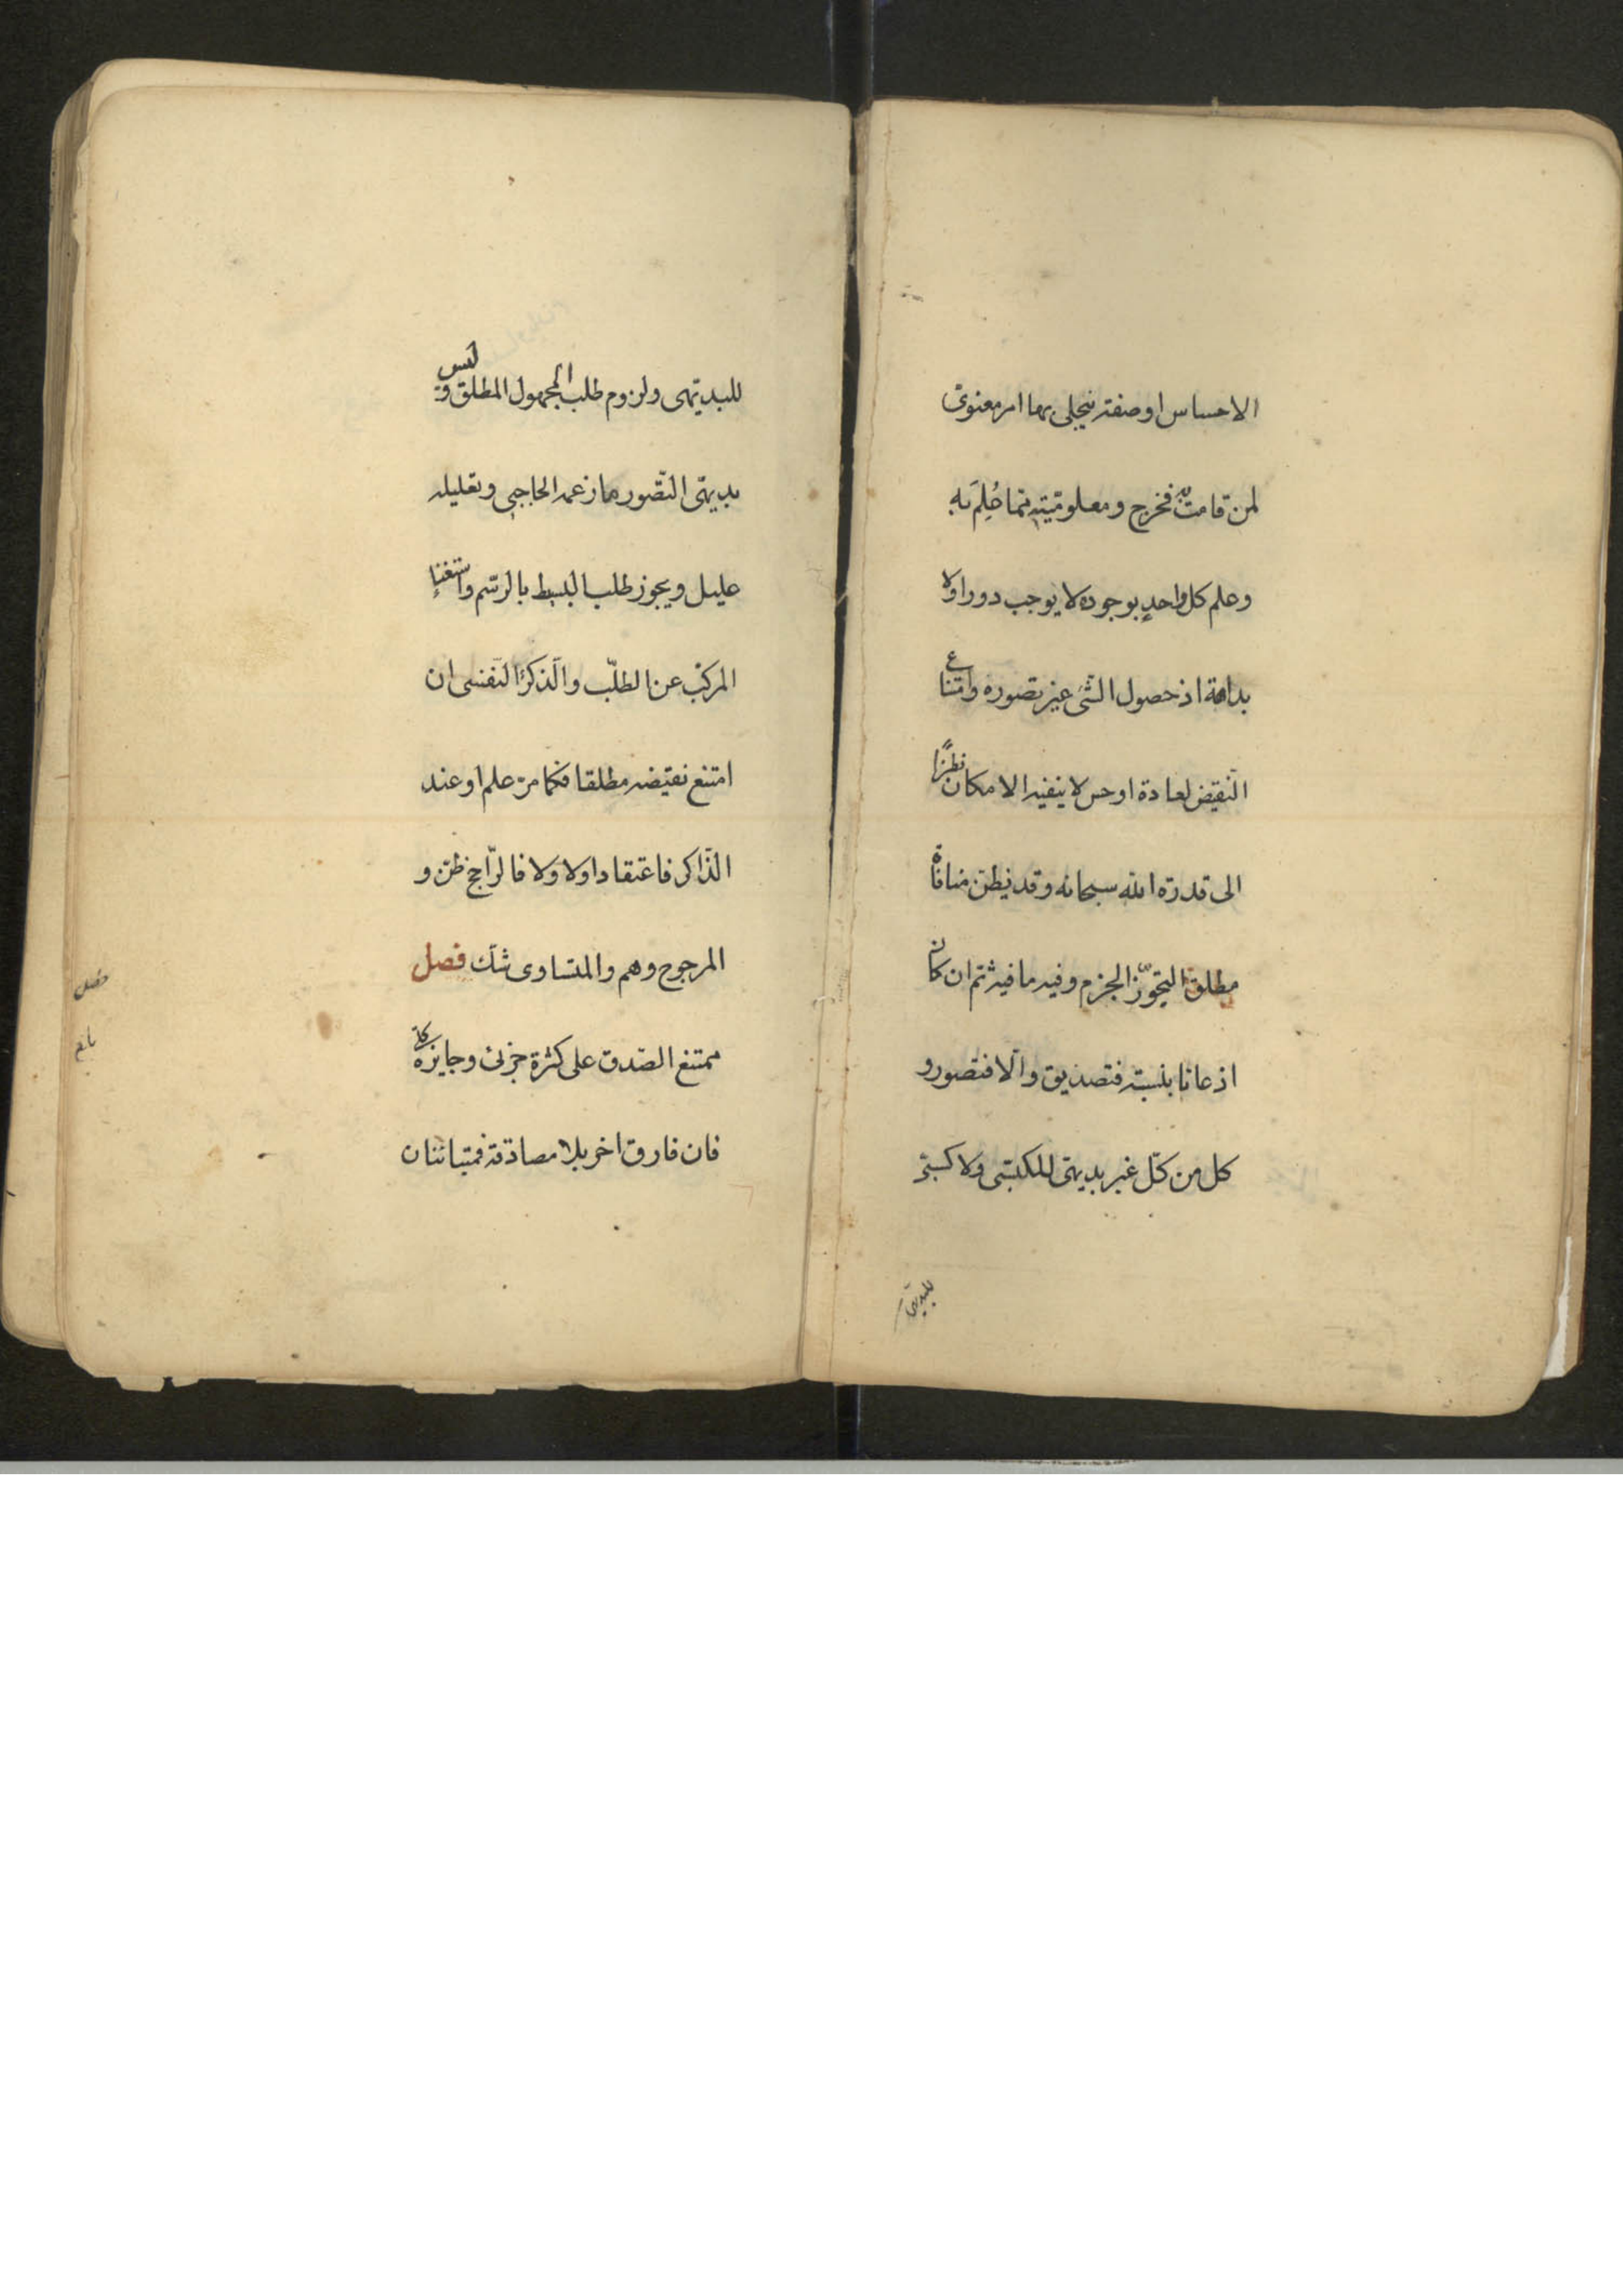 الاحساس او صفة ينجلي بها امر معنوي
لمن قامت به فخرج ومعلوميته بما حُلِمَ به
وعلم كل واحدٍ بوجوده لا يوجب دورا ولا
بداهة اذ حصول الشئ غير تصوره وامتناع
النقيض لعادة او حس لا ينفيه الامكان نظرًا
الى قدرة الله سبحانه وقد يظن منافاة
مطلق التجوّز الجزم وفيه ما فيه ثم ان كان
اذعانا بنسبة فتصديق والّا فتصور و
كل من كلّ غير بديهي للمكتسبي ولا كسبيّ
للبديهي
للبديهى ولزوم طلب المجهول المطلق و ليس
بديهيّ التصور ما زعمه الحاجبي وتعليله
عليل ويجوز طلب البسيط بالرّسم واستغناء
المركّب عن الطلب والذكر النفسى ان
امتنع نقيضه مطلقا فكما مرّ علم او عند
الذّاكر فاعتقاد او لا ولا فالرّاجح ظنّ و
المرجوح وهم والمتساوى شك فصل
ممتنع الصّدق على كثرة جزئ وجايزه كلّى
فان فارق اخر بلا مصادقة فمتباينان
فصل